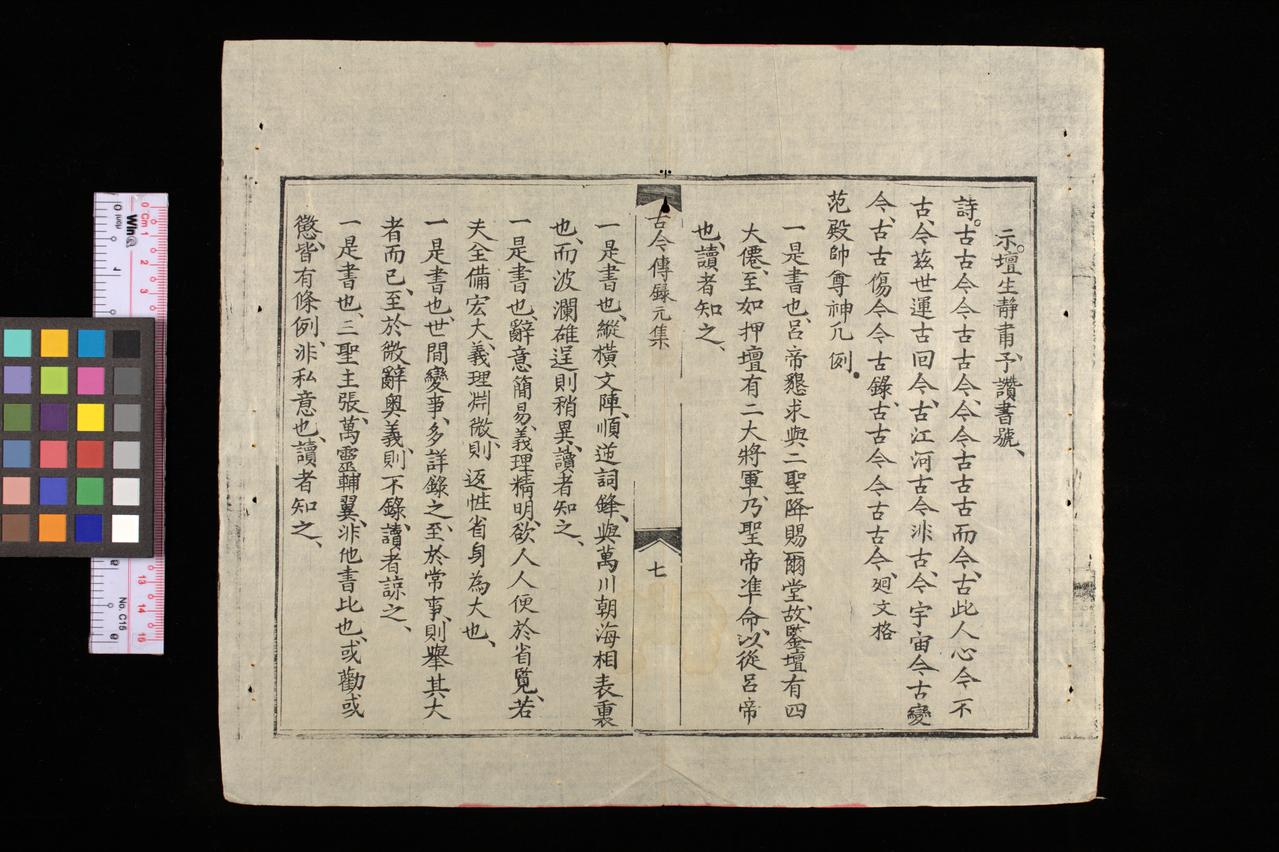 示。壇生靜肅予、讚書號、
詩。古古今今古古今、今今古古古而今、古此人心今不
古、今茲世運古回今、古江河古今非古、今宇宙今古變
今、古古傷今今古錄、古古今今古古今、廻文格
范殿帥尊神凡例。
一是書也、呂帝懇求與二聖降賜爾堂、故鑒壇有四
大僊、至如押壇有二大將軍、乃聖帝準命、以從呂帝
也、讀者知之、
古今傳錄元集
七
一是書也、縱橫文陣、順逆詞鋒、與萬川朝海相表裏
也、而波瀾碓逞則稍異、讀者知之、
一是書也、辭意簡易、義理精明、欲人人便於省覽、若
夫全備宏大、義理淵微、則返性省身為大也、
一是書也、世間變事、多詳錄之、至於常事、則舉其大
者而已、至於微辭奧義、則不錄、讀者諒之、
一是書也、三聖主張、萬靈輔翼、非他書比也、或勸或
懲、皆有條例、非私意也、讀者知之、
Win
Cm
inch
No. C15
0
1
2
3
4
13
14
15